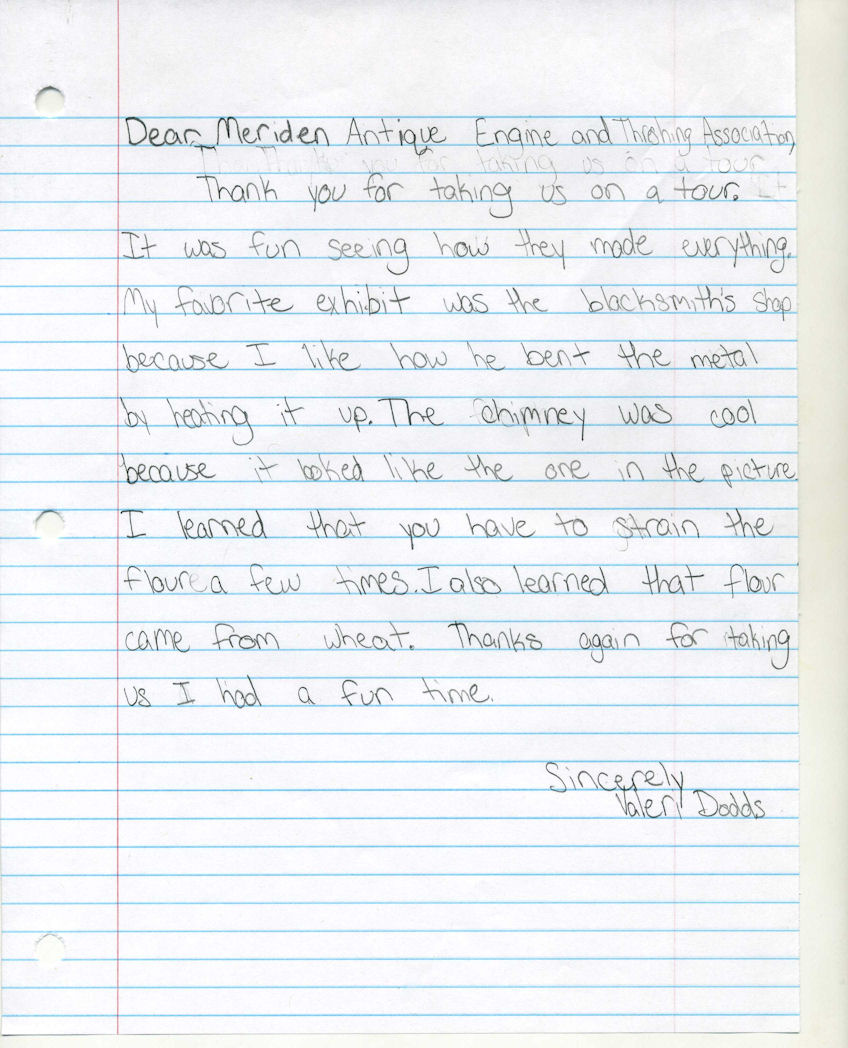 Dear Meriden Antique Engine and Threshing Association,
Thank you for taking us on a tour.
It was fun seeing how they made everything.
My favorite exhibit was the blacksmith's shop
because I like how he bent the metal
by heating it up. The chimney was cool
because it looked like the one in the picture.
I learned that you have to strain the
flour a few times. I also learned that flour
came from wheat. Thanks again for taking
us I had a fun time.
Sincerely
Valeri Dodds